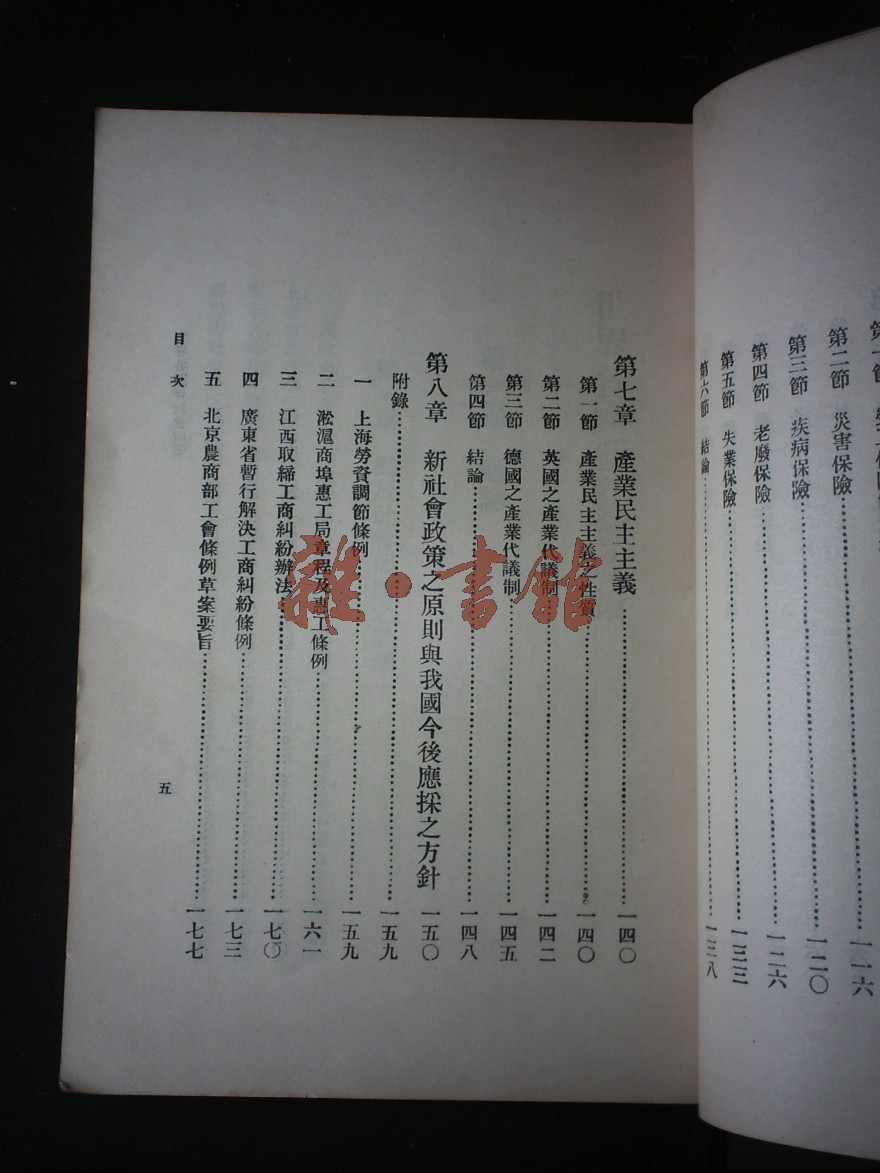 第二節　災害保險……一一六
第三節　疾病保險……一二〇
第四節　老廢保險……一二六
第五節　失業保險……一三三
第六節　結論……一三八
第七章　產業民主主義……一四〇
第一節　產業民主主義之性質……一四〇
第二節　英國之產業代議制……一四二
第三節　德國之產業代議制……一四五
第四節　結論……一四八
第八章　新社會政策之原則與我國今後應採之方針　一五〇
附錄……一五九
一　上海勞資調節條例……一五九
二　淞滬商埠惠工局章程及惠工條例……一六一
三　江西取締工商糾紛辦法……一七〇
四　廣東省暫行解決工商糾紛條例……一七三
五　北京農商部工會條例草案要旨……一七七
目次
五
雜·書館